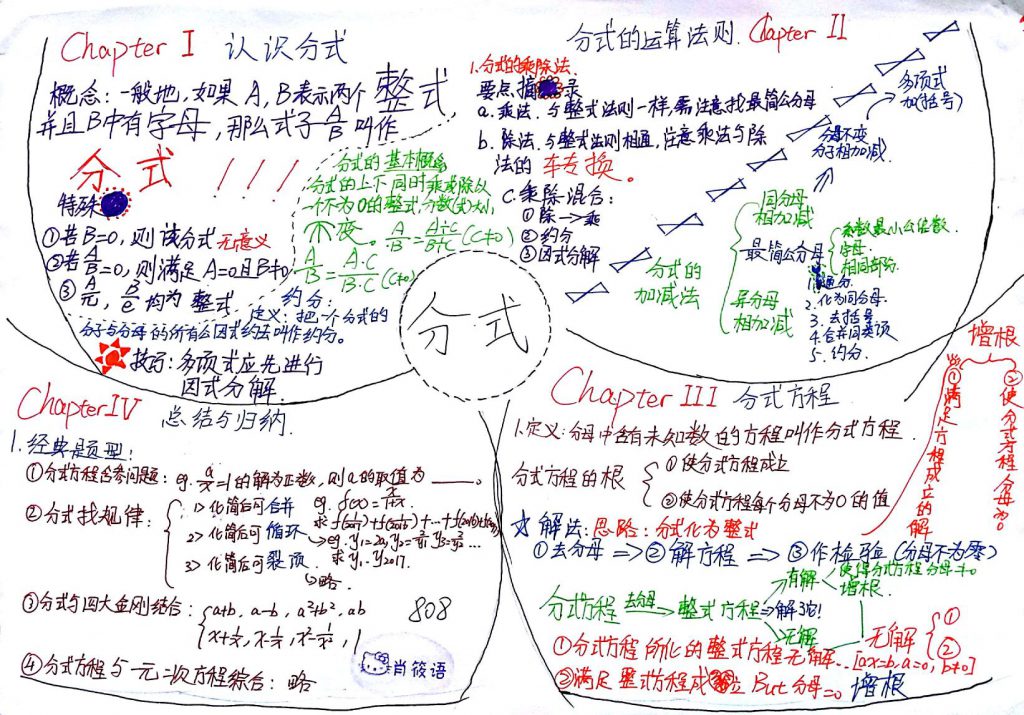 Chapter I 认识分式
概念：一般地，如果A，B表示两个整式
并且B中有字母，那么式子A/B叫作
分式！！！
特殊
①若B=0，则该分式无意义
②若A/B=0，则满足A=0且B≠0
③A/元，B/c均为整式
分式的基本概念
分式的上下同时乘或除以
一个不为0的整式，分数(式)大小
不变。A/B=A÷C/B÷C(C≠0)
A/B=A·C/B·C(C≠0)
约分：
定义：把一个分式的
分子与分母的所有公因式约去叫作约分。
技巧：多项式应先进行
因式分解.
分式的运算法则. Clapter II
1.分式的乘除法.
要点摘录
a.乘法.与整式法则一样，需注意找最简公分母
b.除法.与整式法则相通，注意乘法与除
法的转换。
C.乘除混合：
①除→乘
②约分
③因式分解
多项式
加(括号)
分母不变
分子相加减.
分式的
加减法
同分母
相加减
最简公分母
系数最小公倍数.
字母.
相同部分.
异分母
相加减
1.通分.
2.化为同分母.
3.去括号
4.合并同类项
5.约分.
分式
Chapter III 分式方程
1.定义：分母中含有未知数的方程叫作分式方程.
分式方程的根
①使分式方程成立
②使分式方程每个分母不为0的值
☆解法：思路：分式化为整式
①去分母⇒②解方程⇒③作检验(分母不为零)
增根
①满足方程成立的解
②使分式方程分母为0
分式方程 去分母→ 整式方程⇒解它!
有解
使得分式方程分母≠0
增根.
无解
无解
①
②
①分式方程所化的整式方程无解..[ax=b,a=0,b≠0]
②满足整式方程成立 But 分母=0 增根
Chapter IV
总结与归纳.
1.经典题型：
①分式方程含参问题：eg. a/x=1的解为正数，则a的取值为____。
②分式找规律：
1>化简后可合并
2>化简后可循环
3>化简后可裂项
→略.
③分式与四大金刚结合：
a+b, a-b, a²+b², ab
x+1/x, x-1/x, x²-1/x², 1
④分式方程与一元二次方程综合：略
808
肖筱语